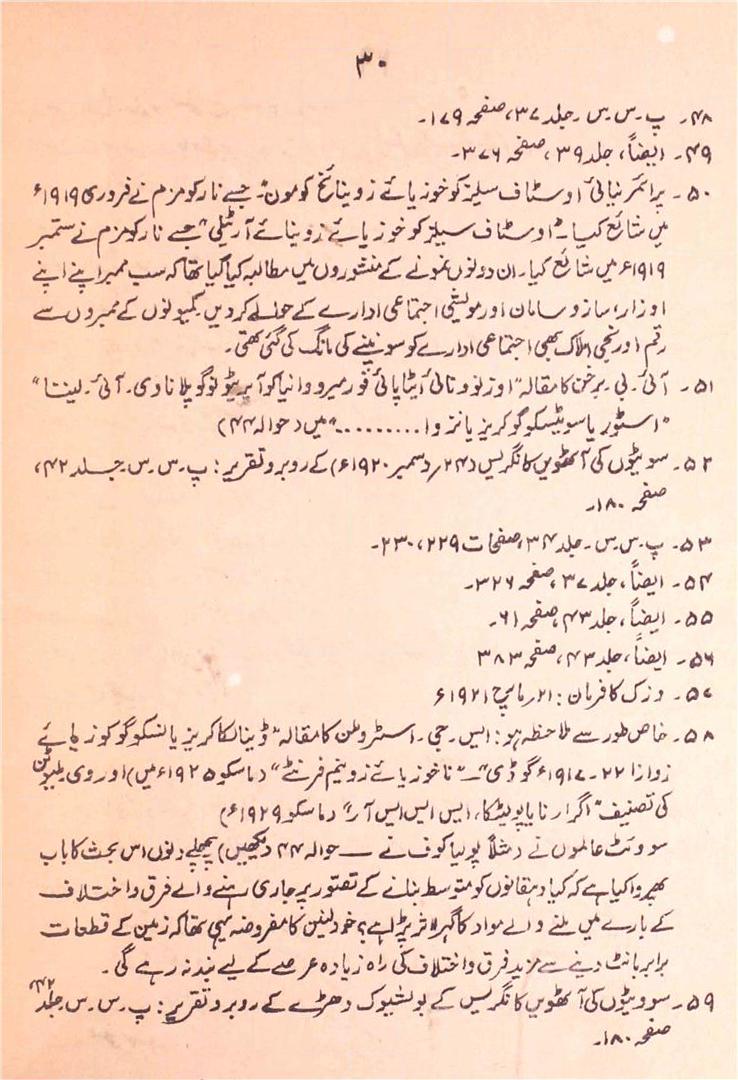 ۳۰
۴۸۔ پ۔س۔س۔ جلد ۳۷، صفحہ ۱۷۹۔
۴۹۔ ایضاً، جلد ۳۹، صفحہ ۳۷۶۔
۵۰۔ پرائمر نیائی اوسٹاف سیلز کو خوزیائے زوینائخ کومون"۔ جسے نارکومزم نے فروری ۱۹۱۹ء
میں شائع کیا۔ "اوسٹاف سیلز کو خوزیائے زوینائے آرٹیلی" جسے نارکومزم نے ستمبر
۱۹۱۹ء میں شائع کیا۔ ان دونوں نمونے کے منشوروں میں مطالبہ کیا گیا تھا کہ سب ممبر اپنے اپنے
اوزار، سازو سامان اور مویشی اجتماعی ادارے کے حوالے کر دیں۔ کمیونوں کے ممبروں سے
رقم اور نجی املاک بھی اجتماعی ادارے کو سونپنے کی مانگ کی گئی تھی۔
۵۱۔ آئی۔ بی۔ برخن کا مقالہ "اوزنوونائی ایٹاپائی فورمیرووانیا کوآپریٹو نوگو پلانا وی۔ آئی۔ لینتا"
"استوریا سویٹسکوگو کریزیانزوا ........." میں (حوالہ ۴۴)
۵۲۔ سویٹوں کی آٹھویں کانگریس (۲۴/دسمبر ۱۹۲۰ء) کے روبرو تقریر: پ۔س۔س۔ جلد ۴۲،
صفحہ ۱۸۰۔
۵۳۔ پ۔س۔س۔ جلد ۳۴، صفحات ۲۲۹، ۲۳۰۔
۵۴۔ ایضاً، جلد ۳۷، صفحہ ۳۲۶۔
۵۵۔ ایضاً، جلد ۴۳، صفحہ ۶۱۔
۵۶۔ ایضاً، جلد ۴۳، صفحہ ۳۸۳
۵۷۔ وزک کا فرمان: ۲۱/مارچ ۱۹۲۱ء
۵۸۔ خاص طور سے ملاحظہ ہو: ایس۔ جی۔ اسٹروملن کا مقالہ "ڈینالکا کریزیانسکوگو کوزیائے
زوازا ۲۲۔۱۹۱۷ء گوڈی" — "ناخوزیائے زوینیم فرنٹے" (ماسکو ۱۹۲۵ء میں) اور وی
کی تصنیف "اگرارنایا پولیٹکا، ایس ایس ایس آر" (ماسکو ۱۹۲۹ء)
سوویٹ عالموں نے (مثلاً پولیاکوف نے — حوالہ ۴۴ دیکھیں) پچھلے دنوں اس بحث کا باب
پھر وا کیا ہے کہ کیا دہقانوں کو متوسط بنانے کے تصور پر جاری رہنے والے فرق و اختلاف
کے بارے میں ملنے والے مواد کا گہرا اثر پڑا ہے؟ خود لینن کا مفروضہ یہی تھا کہ زمین کے قطعات
برابر بانٹ دینے سے مزید فرق و اختلاف کی راہ زیادہ عرصے کے لیے بند نہ رہے گی۔
۵۹۔ سوویٹوں کی آٹھویں کانگریس کے بولشیوک دھڑے کے روبرو تقریر: پ۔س۔س۔ جلد ۴۲،
صفحہ ۱۸۰۔